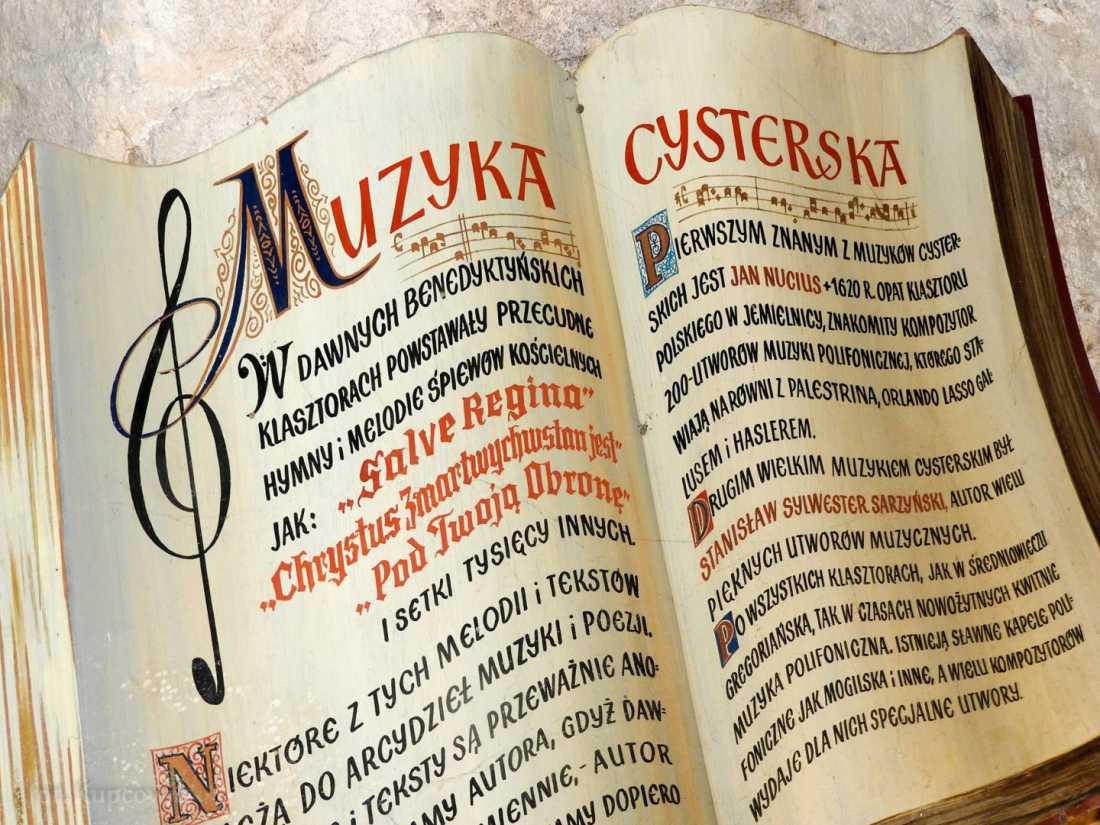 MUZYKA
W DAWNYCH BENEDYKTYŃSKICH
KLASZTORACH POWSTAWAŁY PRZECUDNE
HYMNY i MELODIE ŚPIEWÓW KOŚCIELNYCH
JAK: „Salve Regina”
„Chrystus Zmartwychwstan jest”
„Pod Twoją Obronę”
I SETKI TYSIĘCY INNYCH.
NIEKTÓRE Z TYCH MELODII i TEKSTÓW
DO ARCYDZIEŁ MUZYKI i POEZJI.
i TEKSTY SĄ PRZEWAŻNIE ANO-
AUTORA, GDYŻ DAW-
- AUTOR
DOPIERO
CYSTERSKA
PIERWSZYM ZNANYM Z MUZYKÓW CYSTER-
SKICH JEST JAN NUCIUS +1620 R. OPAT KLASZTORU
POLSKIEGO W JEMIELNICY, ZNAKOMITY KOMPOZYTOR
200-UTWORÓW MUZYKI POLIFONICZNEJ, KTÓREGO STA-
WIAJĄ NA RÓWNI Z PALESTRINA, ORLANDO LASSO GAL-
LUSEM i HASLEREM.
DRUGIM WIELKIM MUZYKIEM CYSTERSKIM BYŁ
STANISŁAW SYLWESTER SARZYŃSKI, AUTOR WIELU
PIĘKNYCH UTWORÓW MUZYCZNYCH.
PO WSZYSTKICH KLASZTORACH, JAK W ŚREDNIOWIECZU
GREGORIAŃSKA, TAK W CZASACH NOWOŻYTNYCH KWITNIE
MUZYKA POLIFONICZNA. ISTNIEJĄ SŁAWNE KAPELE POLI-
FONICZNE JAK MOGILSKA i INNE, A WIELU KOMPOZYTORÓW
WYDAJE DLA NICH SPECJALNE UTWORY.